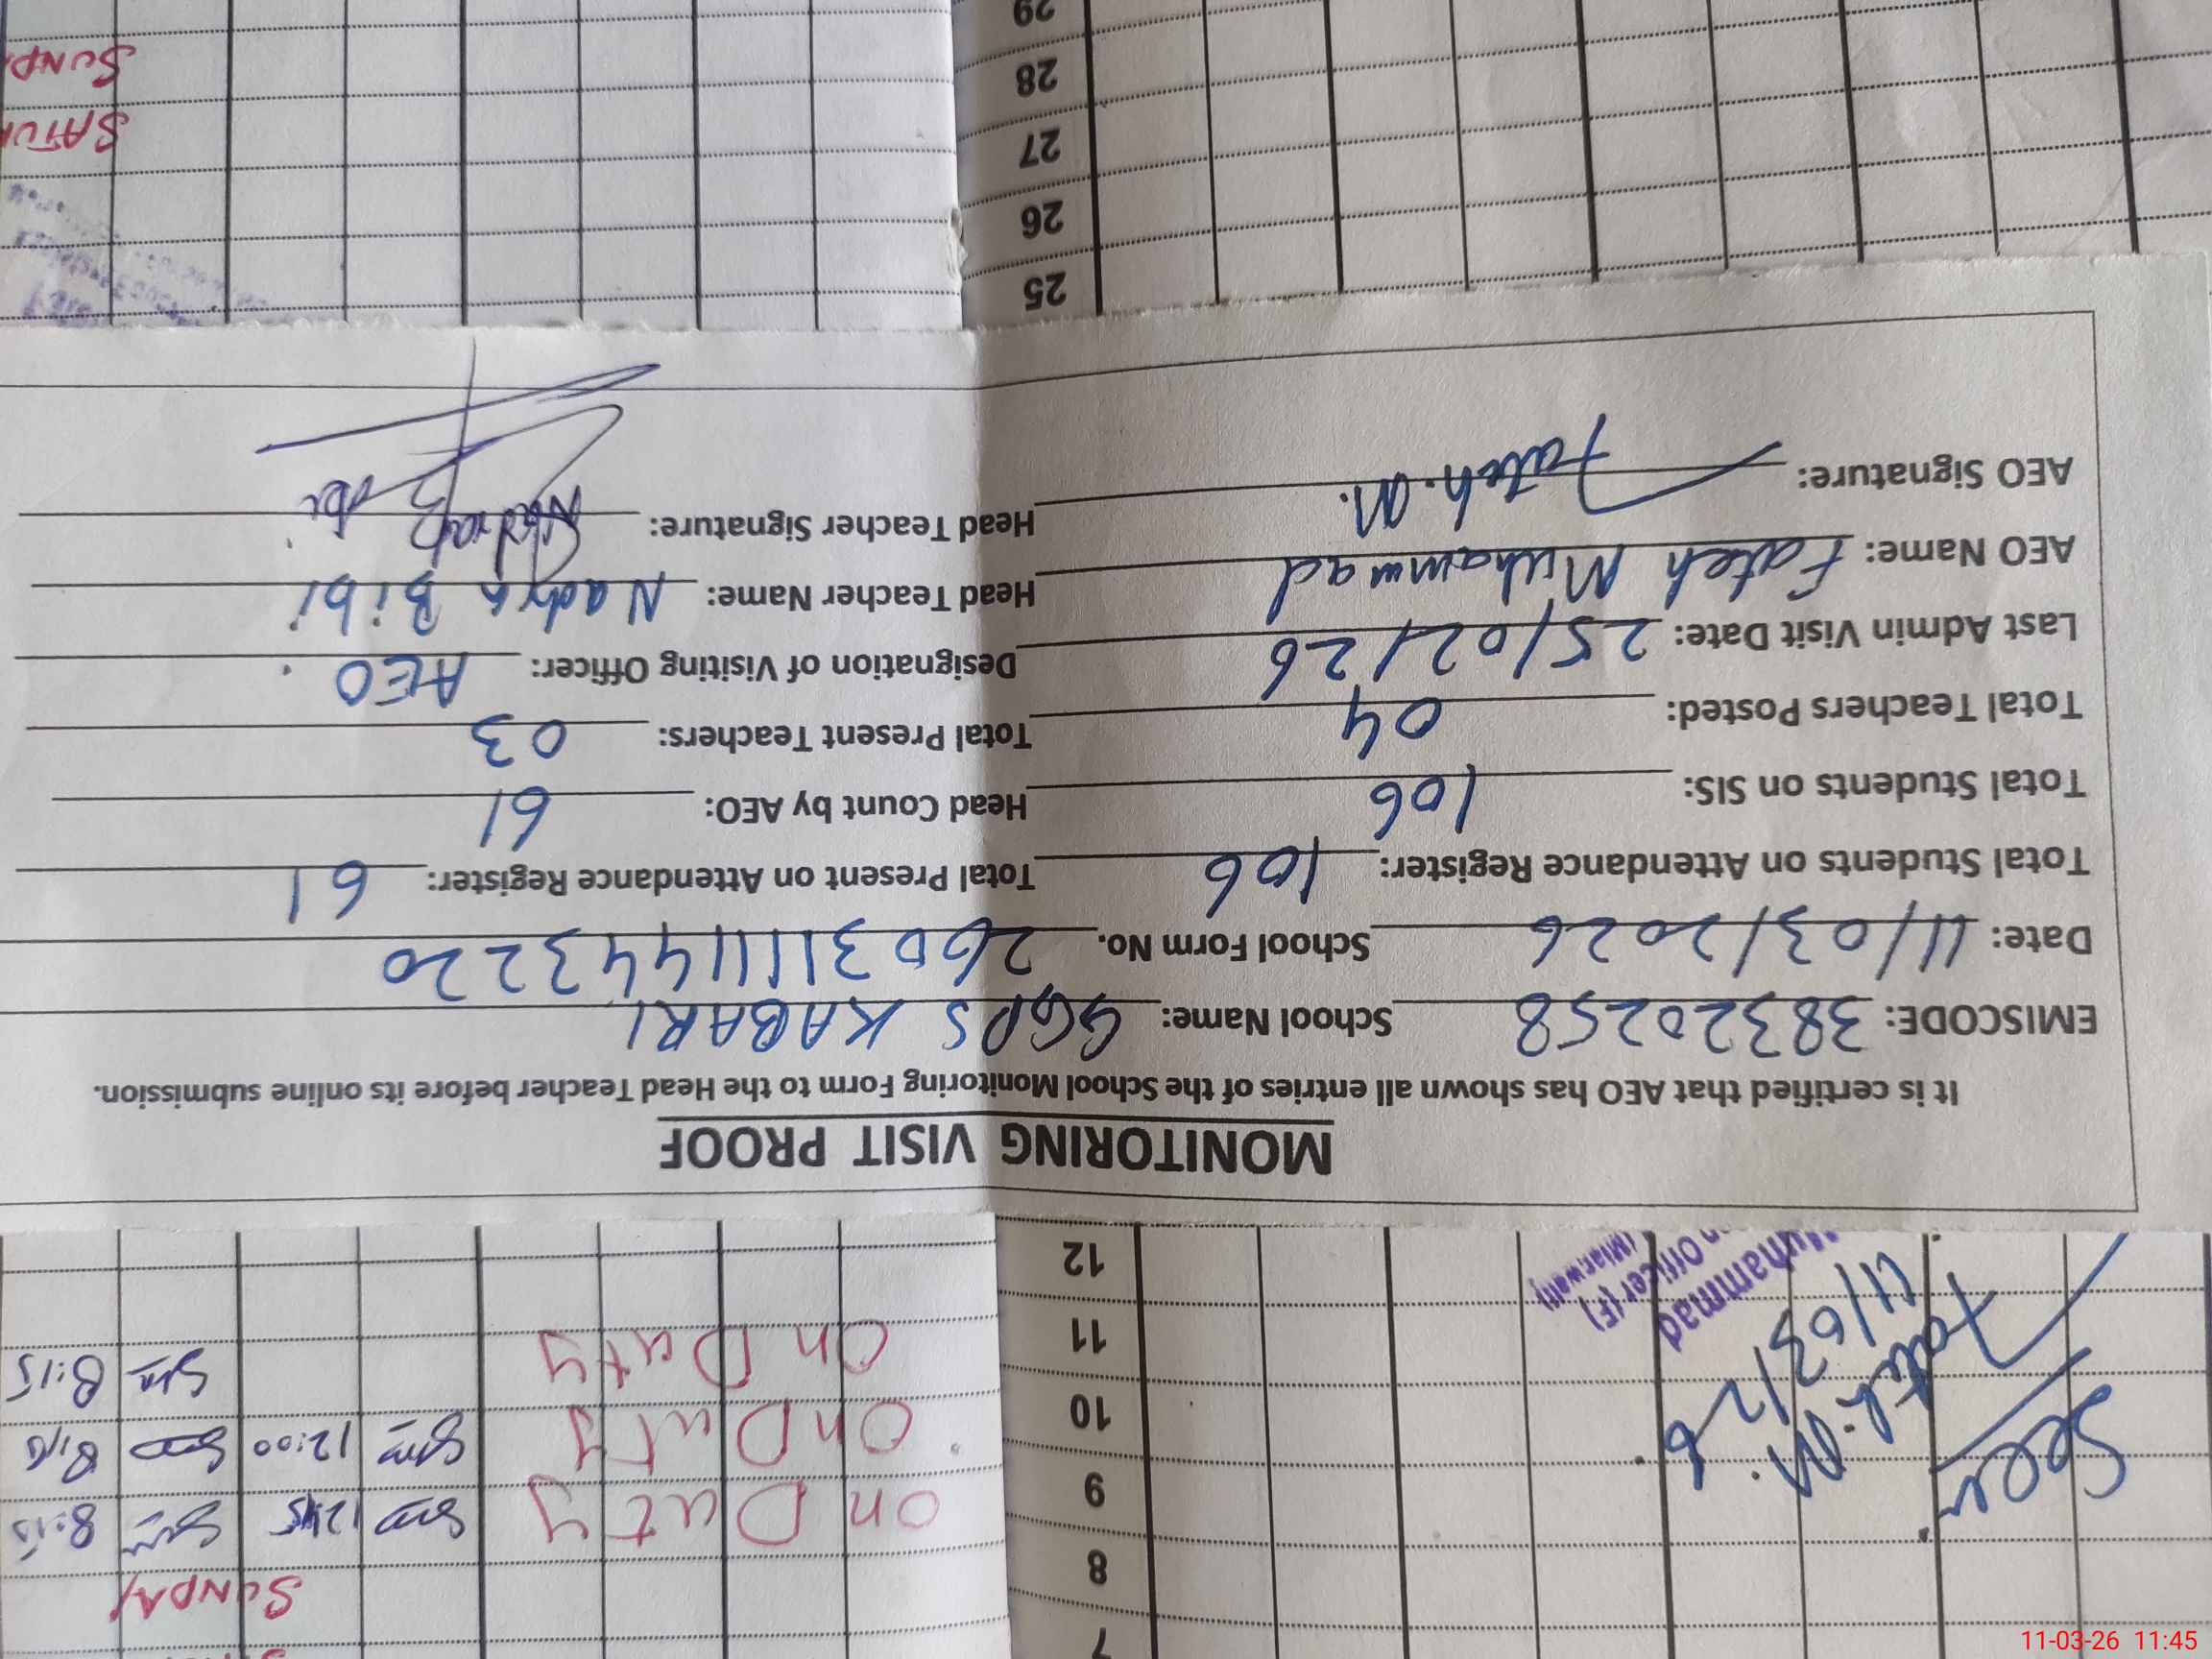 7
SUNDAY
8
9 on Duty 12:45 8:15
10 on Duty 12:00 8:16
11 on Duty 8:15
12
Seen
Fateh.M.
11/03/26
Muhammad
Officer (F)
(Mianwali)
MONITORING VISIT PROOF
It is certified that AEO has shown all entries of the School Monitoring Form to the Head Teacher before its online submission.
EMISCODE: 38320258 School Name: GGPS KABARI
Date: 11/03/2026 School Form No. 26031111443220
Total Students on Attendance Register: 106 Total Present on Attendance Register: 61
Total Students on SIS: 106 Head Count by AEO: 61
Total Teachers Posted: 04 Total Present Teachers: 03
Last Admin Visit Date: 25/02/26 Designation of Visiting Officer: AEO.
AEO Name: Fateh Muhammad Head Teacher Name: Nadra Bibi
AEO Signature: Fateh.M. Head Teacher Signature: Nadra Bibi
25
26
27
SATU
28
SUND
29
11-03-26 11:45